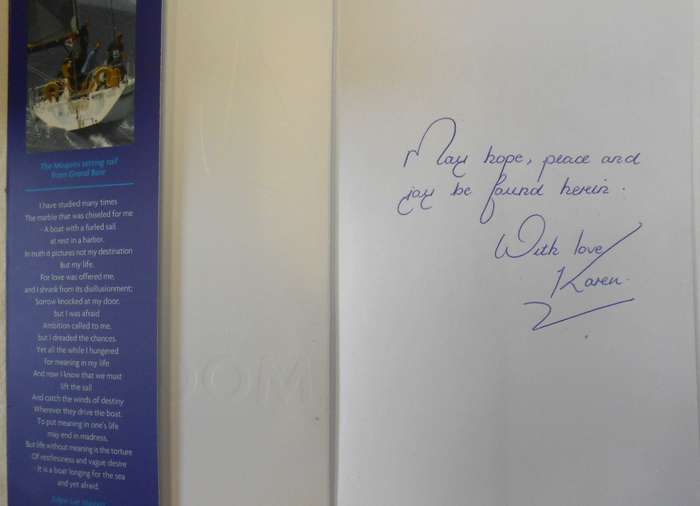 The Moquini setting sail
from Grand Baie
I have studied many times
The marble that was chiseled for me
- A boat with a furled sail
at rest in a harbor.
In truth it pictures not my destination
But my life.
For love was offered me,
and I shrank from its disillusionment;
Sorrow knocked at my door,
but I was afraid
Ambition called to me,
but I dreaded the chances.
Yet all the while I hungered
for meaning in my life
And now I know that we must
lift the sail
And catch the winds of destiny
Wherever they drive the boat.
To put meaning in one's life
may end in madness,
But life without meaning is the torture
Of restlessness and vague desire
- It is a boat longing for the sea
and yet afraid.
Edgar Lee Masters
May hope, peace and
joy be found herein.
With love
Karen.